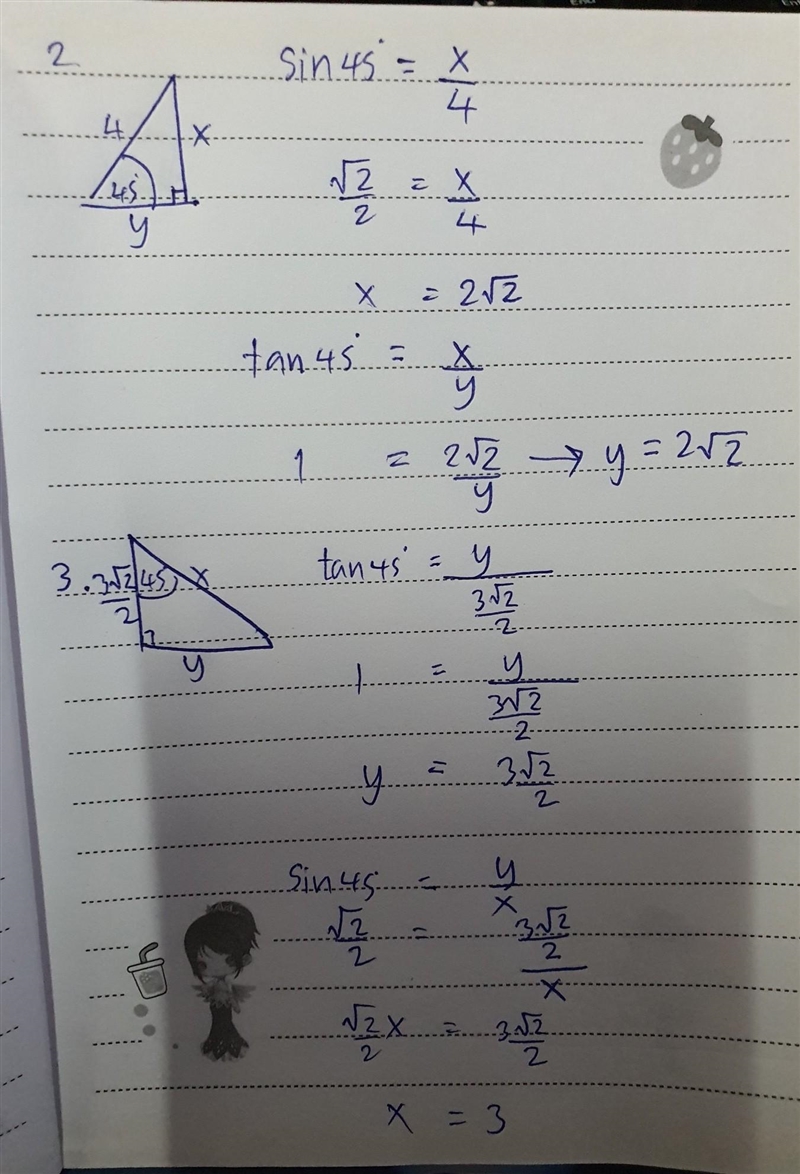 2
sin 45° = x/4
4 x 45° y
√2/2 = x/4
x = 2√2
tan 45° = x/y
1 = 2√2/y → y = 2√2
3. 3√2/2 45° x y
tan 45° = y/(3√2/2)
1 = y/(3√2/2)
y = 3√2/2
sin 45 = y/x
√2/2 = (3√2/2)/x
√2/2 x = 3√2/2
x = 3